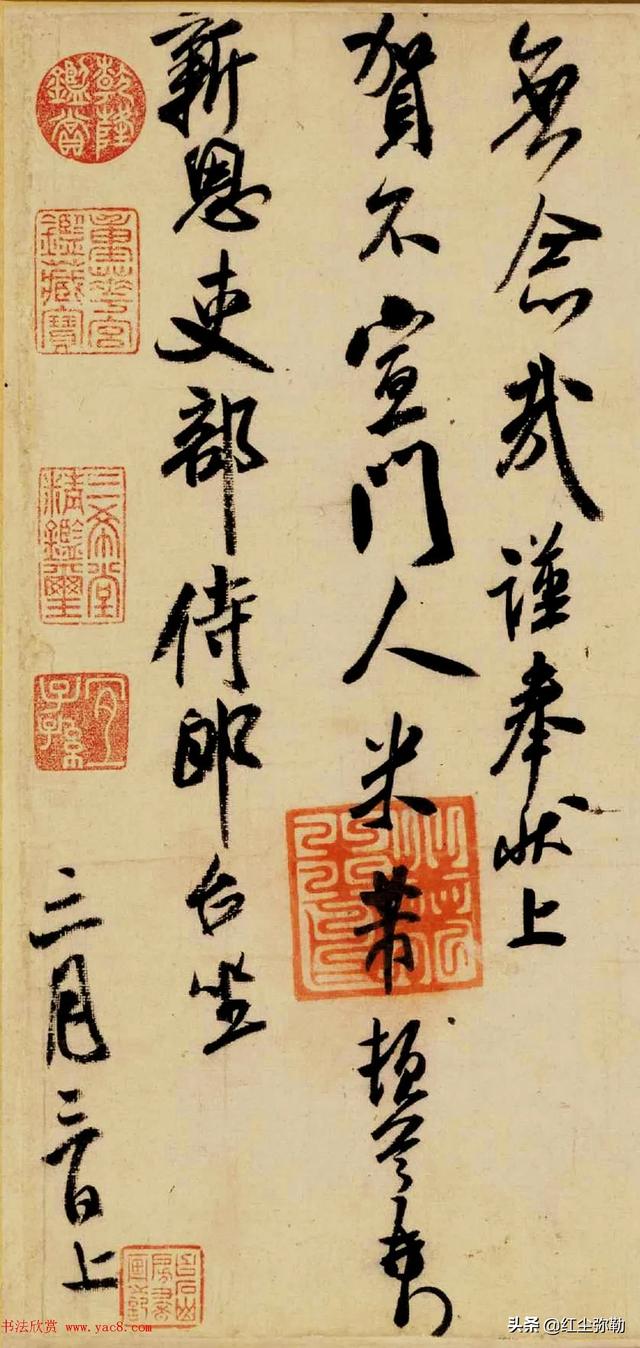 無念哉謹奉状上
賀不宣門人米芾頓首再
新恩吏部侍郎台坐
三月三日上
乾隆鑑賞
重華宮鑑藏寶
三希堂精鑑璽
宜子孫
书法欣赏
www.yac8.com
头条 @红尘弥勒